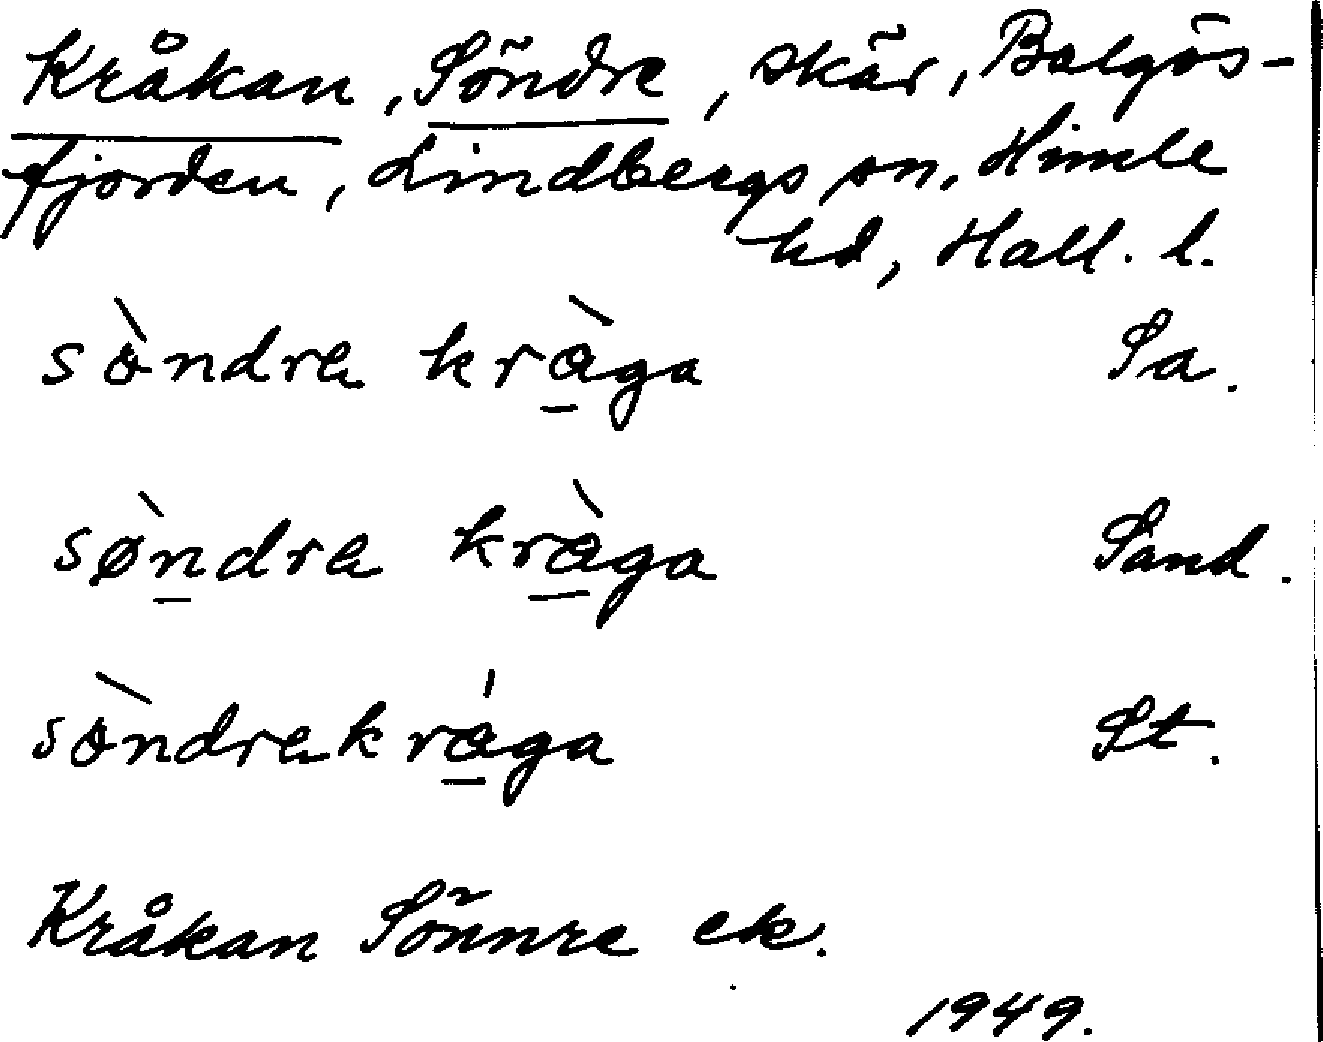 Kråkan, Söndre, skär, Balgös-
fjorden, Lindbergs sn, Himle
hd, Hall. l.
sòndra kràga Sa.
søǹdra kràga Sand.
sòndrakrága St.
Kråkan Sönnre ek.
1949.